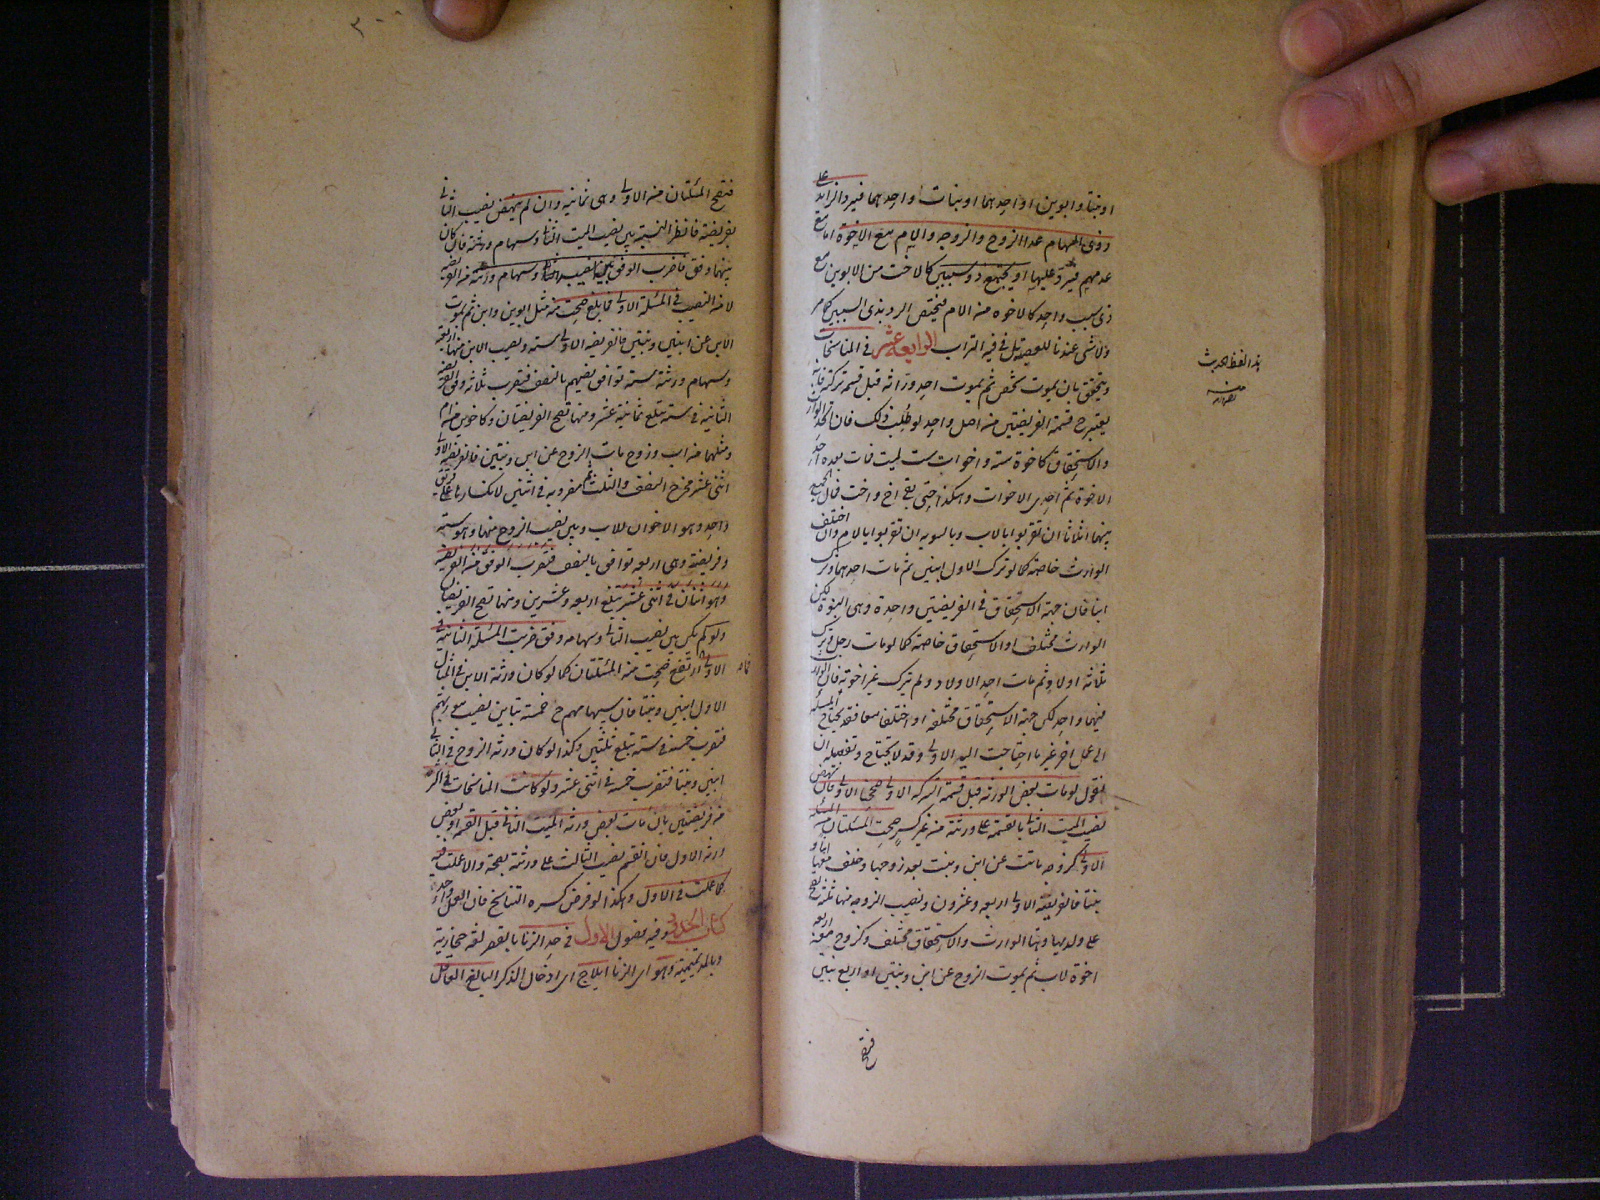 او بنتا وابوين او احدهما او بنات واحدهما فيرد الزائد على
ذوى السهام عدا الزوج والزوجة والام مع الاخوة اما مع
عدمهم فيرد عليها او يجتمع ذو سببين كالاخت من الابوين مع
ذى سبب واحد كالاخوة من الام فيختص الرد بذى السببين كما مر
ولا شئ عندنا للعصبة بل فى فيه التراب الرابعة عشر فى المناسخات
ويتحقق بان يموت شخص ثم يموت احد وراثه قبل قسمة تركته فانه
يعتبر ح قسمة الفريضتين من اصل واحد لو طلب ذلك فان اتحد الوارث
والاستحقاق كاخوة ستة واخوات ست لميت فمات بعده احد
الاخوة ثم احدى الاخوات وهكذا حتى بقى اخ واخت فمال الجميع
بينهما اثلاثا ان تقربوا بالاب وبالسوية ان تقربوا بالام وان اختلف
الوارث خاصة كما لو ترك الاول ابنين ثم مات احدهما وترك
ابنا فان جهة الاستحقاق فى الفريضتين واحدة وهى البنوة لكن
الوارث مختلف او الاستحقاق خاصة كما لو مات رجل وترك
ثلاثة اولاد ثم مات احد الاولاد ولم يترك غير اخوته فان الوارث
فيهما واحد لكن جهة الاستحقاق مختلفة او اختلفا معا فقد يحتاج المسئلة
الى عمل اخر غير ما احتاجت اليه الاولى وقد لا يحتاج وتفصيله ان
نقول لو مات بعض الورثة قبل قسمة التركة الاولى صححنا الاولى فان نهض
نصيب الميت الثانى بالقسمة على ورثته من غير كسر صحت المسئلتان من المسئلة
الاولى كزوجة ماتت عن ابن وبنت بعد زوجها وخلف معهما ابنا و
بنتا فالفريضة الاولى اربعة وعشرون ونصيب الزوجة منها ثلثة تصح
على ولديها وهنا الوارث والاستحقاق مختلف وكزوج معه اربعة
اخوة لاب ثم يموت الزوج عن ابن وبنتين او اربع بنين
فتصح المسئلتان من الاولى وهى ثمانية وان لم ينهض نصيب الثانى
بفريضته فانظر النسبة بين نصيب الميت الثانى وسهام ورثته فان كان
بينهما وفق فاضرب الوفق بين نصيب الثانى وسهام ورثته من الفريضة
لا من النصيب فى المسئلة الاولى فما بلغ صحت منه مثل ابوين وابن ثم يموت
الابن عن ابنين وبنتين فالفريضة الاولى ستة ونصيب الابن منها اربعة
وسهام ورثته ستة توافق نصيبهم بالنصف فتضرب ثلاثة وفق الفريضة
الثانية فى ستة تبلغ ثمانية عشر ومنها تصح الفريضتان وكاخوين من ام
ومثلهما من اب وزوج مات الزوج عن ابن وبنتين فالفريضة الاولى
اثنى عشر مخرج النصف والثلث ثم مضروبة فى اثنين لانكسارها على فريق
واحد وهو الاخوان للاب وبين نصيب الزوج منها وهو ستة
وفريضته وهى اربعة توافق بالنصف فتضرب الوفق من الفريضة
وهو اثنان فى اثنى عشر تبلغ اربعة وعشرين ومنها تصح الفريضتان
ولو لم يكن بين نصيب الثانى وسهامه وفق ضربت المسئلة الثانية فى
الاولى فما ارتفع صحت منه المسئلتان كما لو كان ورثة الابن فى المثال
الاول ابنين وبنتا فان سهامهم ح خمسة تباين نصيب مورثهم
فتضرب خمسة فى ستة تبلغ ثلثين وكذا لو كان ورثة الزوج فى الثانى
ابنين وبنتا فتضرب خمسة فى اثنى عشر ولو كانت المناسخات فى اكثر
من فريضتين بان مات بعض ورثة الميت الثانى قبل القسمة او بعض
ورثة الاول فان انقسم نصيب الثالث على ورثته بصحة والا عملت فيه
كما عملت فى الاول وهكذا لو فرض كثرة التناسخ فان العمل واحد
كتاب الحدود وفيه فصول الاول فى حد الزنا بالقصر لغة حجازية
وبالمد تميمية وهو اى الزنا ايلاج اى ادخال الذكر البالغ العاقل